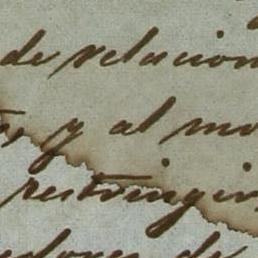 de relacion
y al mo
restringir
de